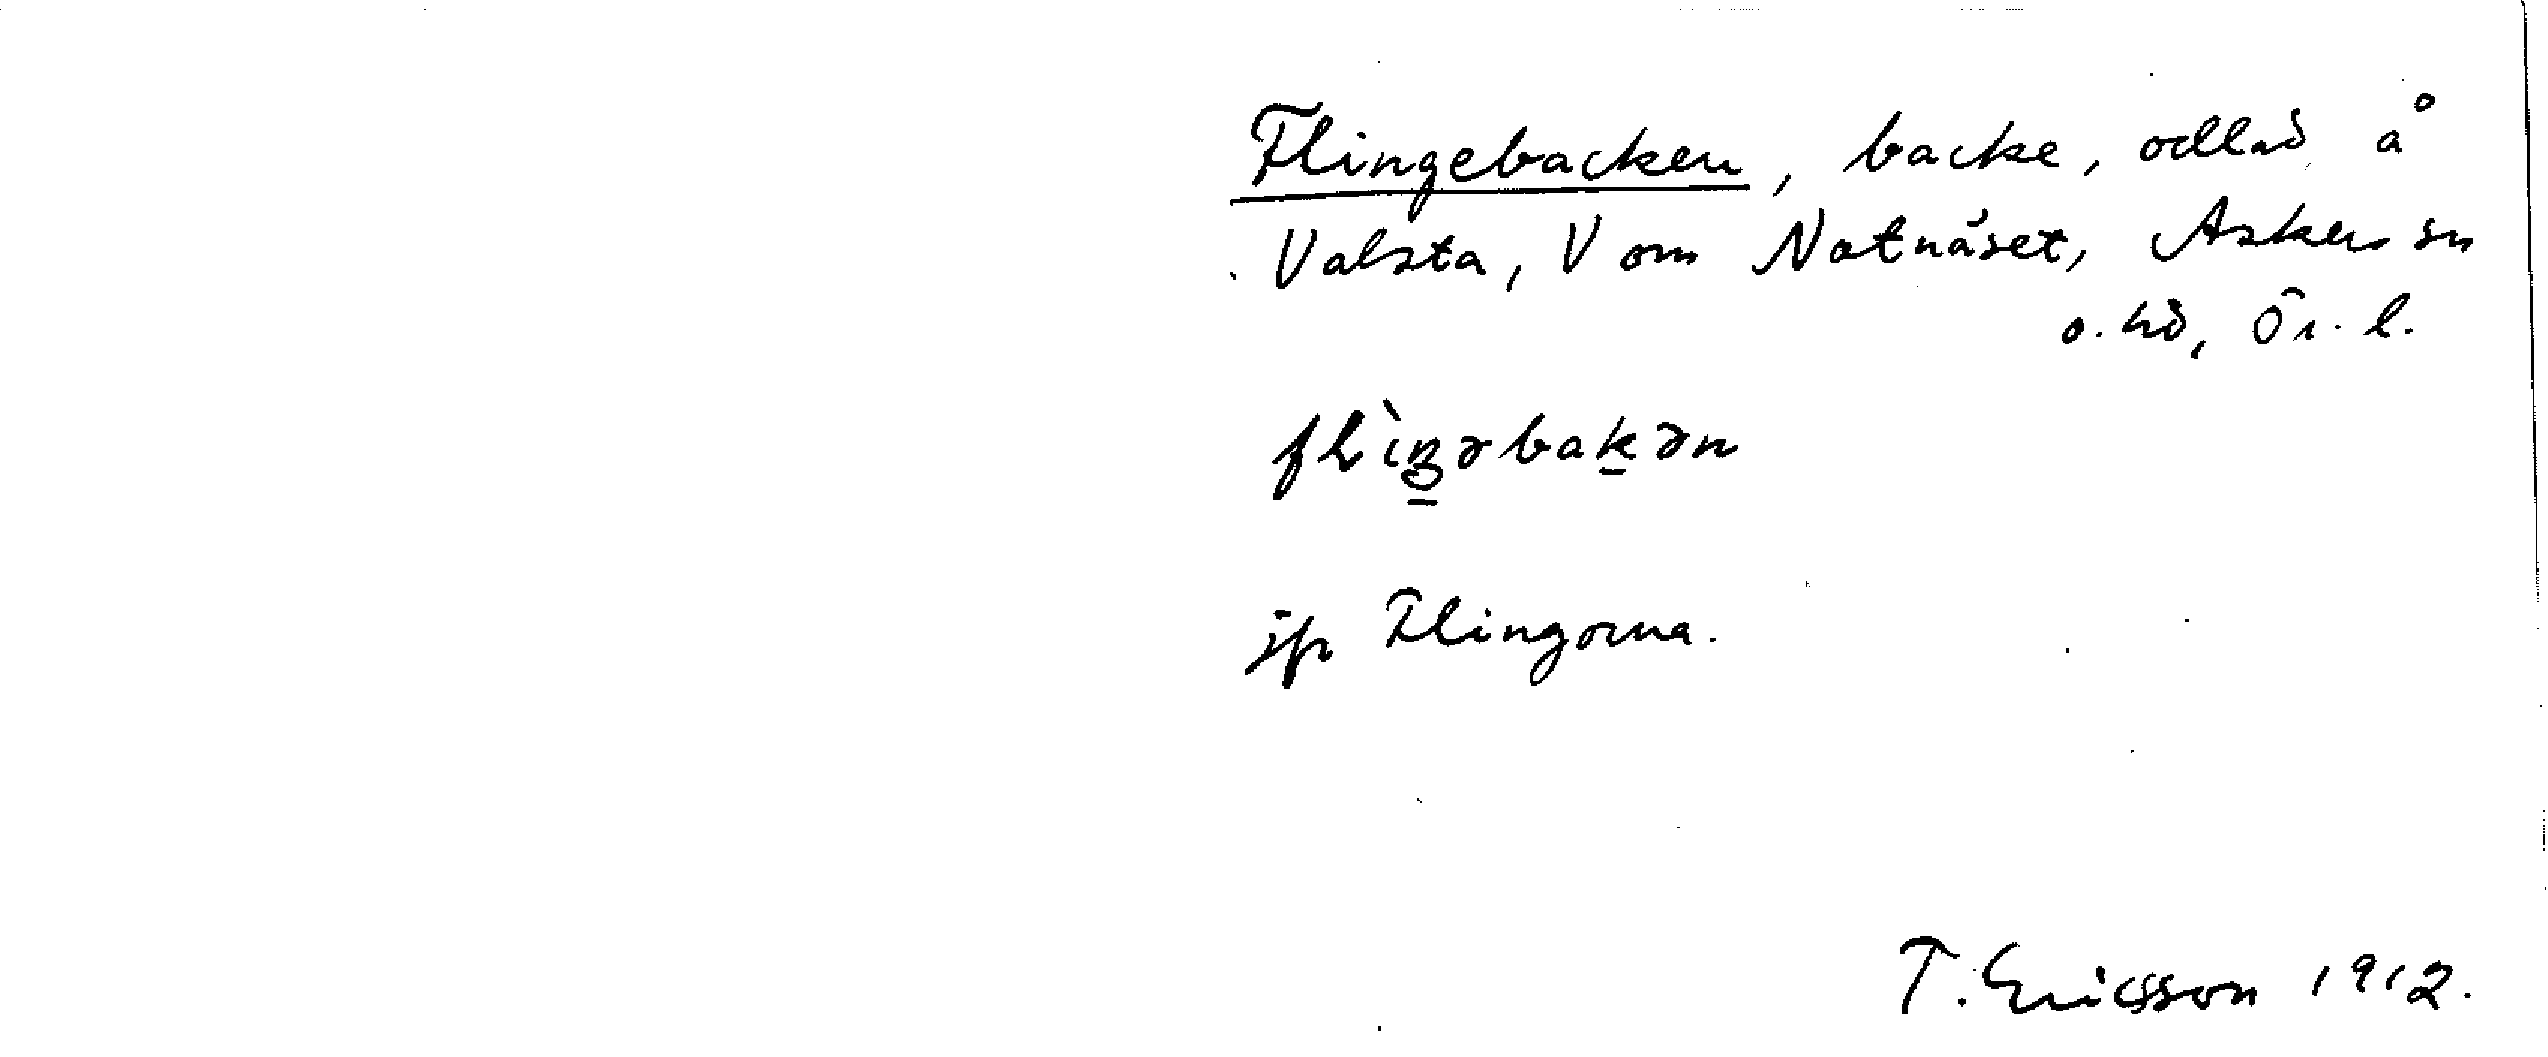 Flingebacken, backe, odlad å
Valsta, V om Notnäset, Askers sn
o. hd, Ör. l.
flìŋəbakən
jfr Flingorna.
T. Ericsson 1912.